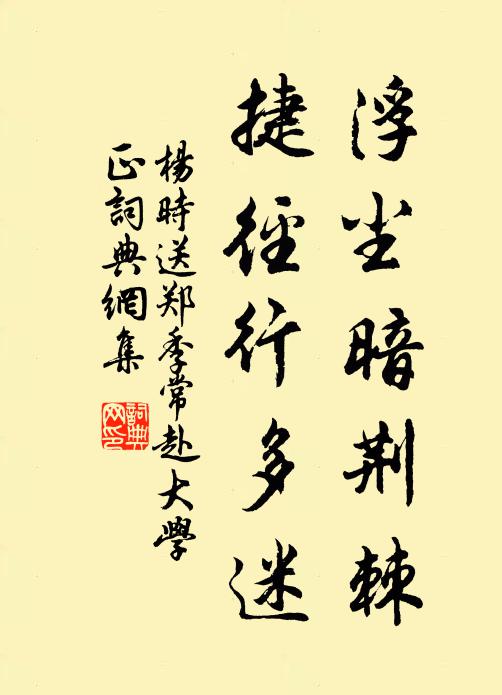 浮尘暗荆棘
捷径行多迷
杨时送郑季常赴大学
正词典网集
词典网印